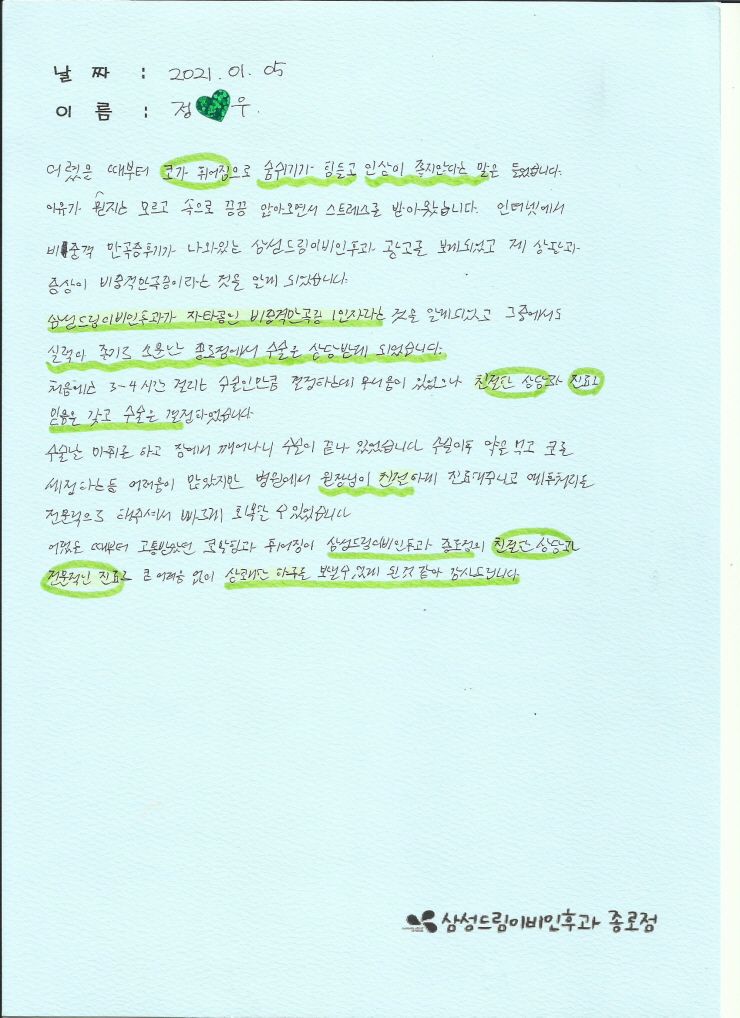 날 짜 : 2021. 01. 05
이 름 : 정 우.
어렸을 때부터 코가 휘어짐으로 숨쉬기가 힘들고 인상이 좋지않다는 말은 들었습니다.
이유가 뭔지는 모르고 속으로 끙끙 앓아오면서 스트레스를 받아왔습니다. 인터넷에서
비중격 만곡증후기가 나와있는 삼성드림이비인후과 광고를 보게되었고 제 상황과
증상이 비중격만곡증이라는 것을 알게 되었습니다.
삼성드림이비인후과가 자타공인 비중격만곡증 1인자라는 것을 알게되었고 그중에서도
실력이 좋기로 소문난 종로점에서 수술은 상담받게 되었습니다.
처음에는 3~4시간 걸리는 수술인만큼 결정하는데 무서움이 있었으나 친절한 상담과 진료로
믿음은 갖고 수술은 결정하였습니다.
수술날 마취를 하고 잠에서 깨어나니 수술이 끝나 있었습니다. 수술이후 약을 먹고 코를
세정하는등 어려움이 많았지만 병원에서 원장님이 친절하게 진료해주시고 예후처리를
전문적으로 해주셔서 빠르게 회복할 수 있었습니다
어렸을 때부터 고통받았던 코막힘과 휘어짐이 삼성드림이비인후과 종로점의 친절한 상담과
전문적인 진료로 큰 어려움 없이 상쾌한 하루를 보낼수 있게 된것 같아 감사드립니다.
삼성드림이비인후과 종로점